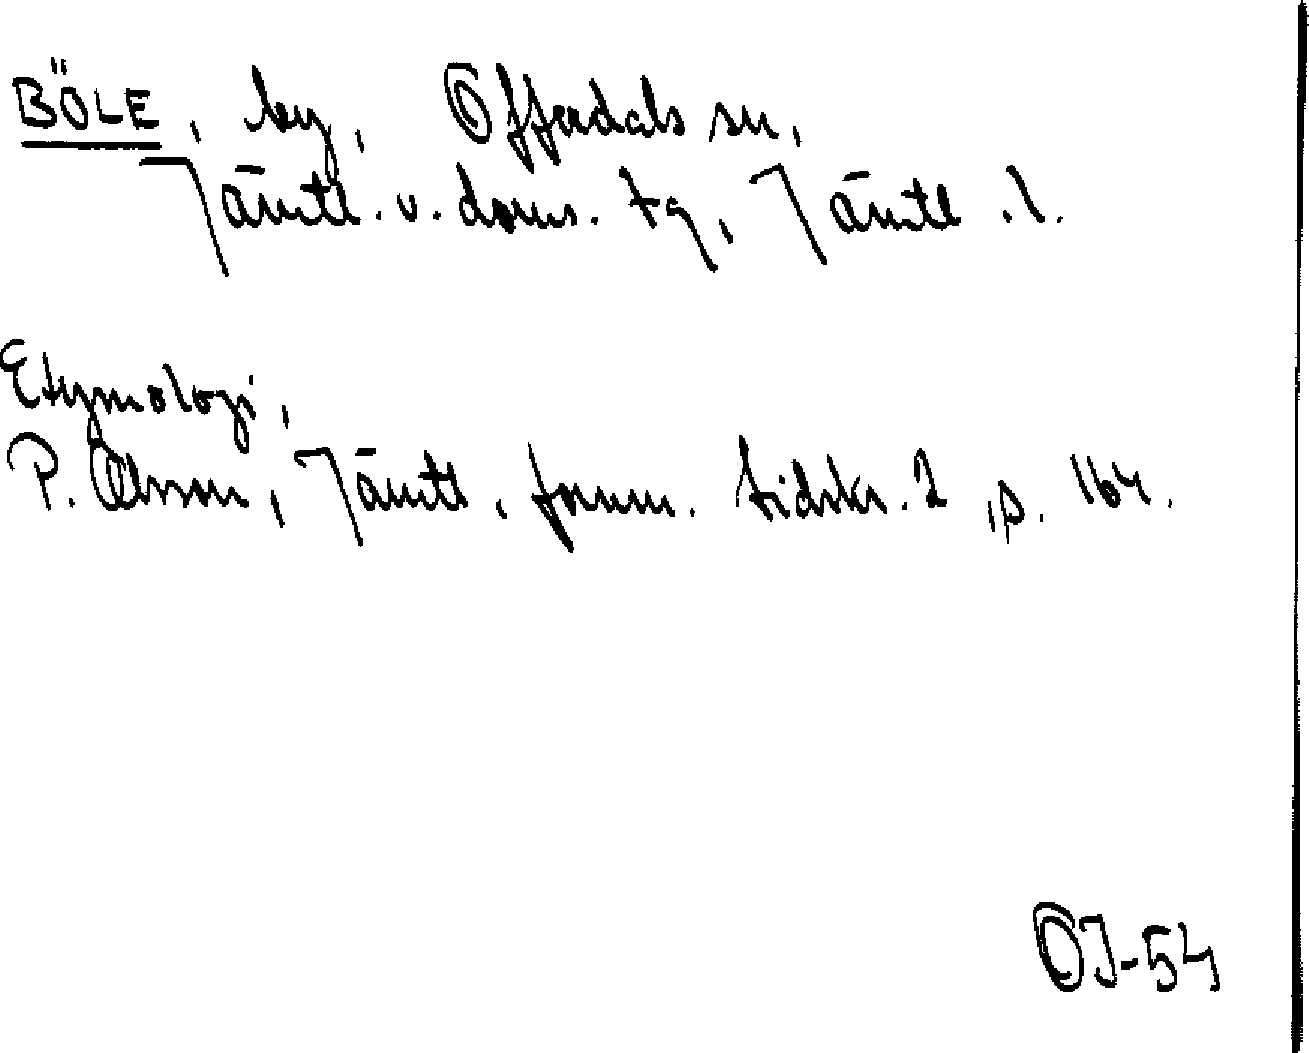 BÖLE, by, Offerdals sn,
Jämtl. v. doms. tg, Jämtl. l.
Etymologi,
P. Olsson, Jämtl. fornm. tidskr. 2, s. 164.
OJ-54